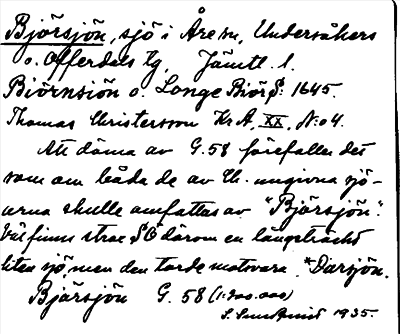 Björsjön, sjö i Åre sn, Undersåkers
o. Offerdals tg, Jämtl. l.
Biörnsiön o. Longe Biörs: 1645.
Thomas Christersson Kr.A. XX, N:o 4.
Att döma av G. 58 förefaller det
som om båda de av Ch. angivna sjö-
arna skulle omfattas av "Björsjön".
Väl finns strax SÖ därom en långsträckt
liten sjö, men den torde motsvara *Darsjön.
Bjärsjön G. 58 (1:200.000)
1935.